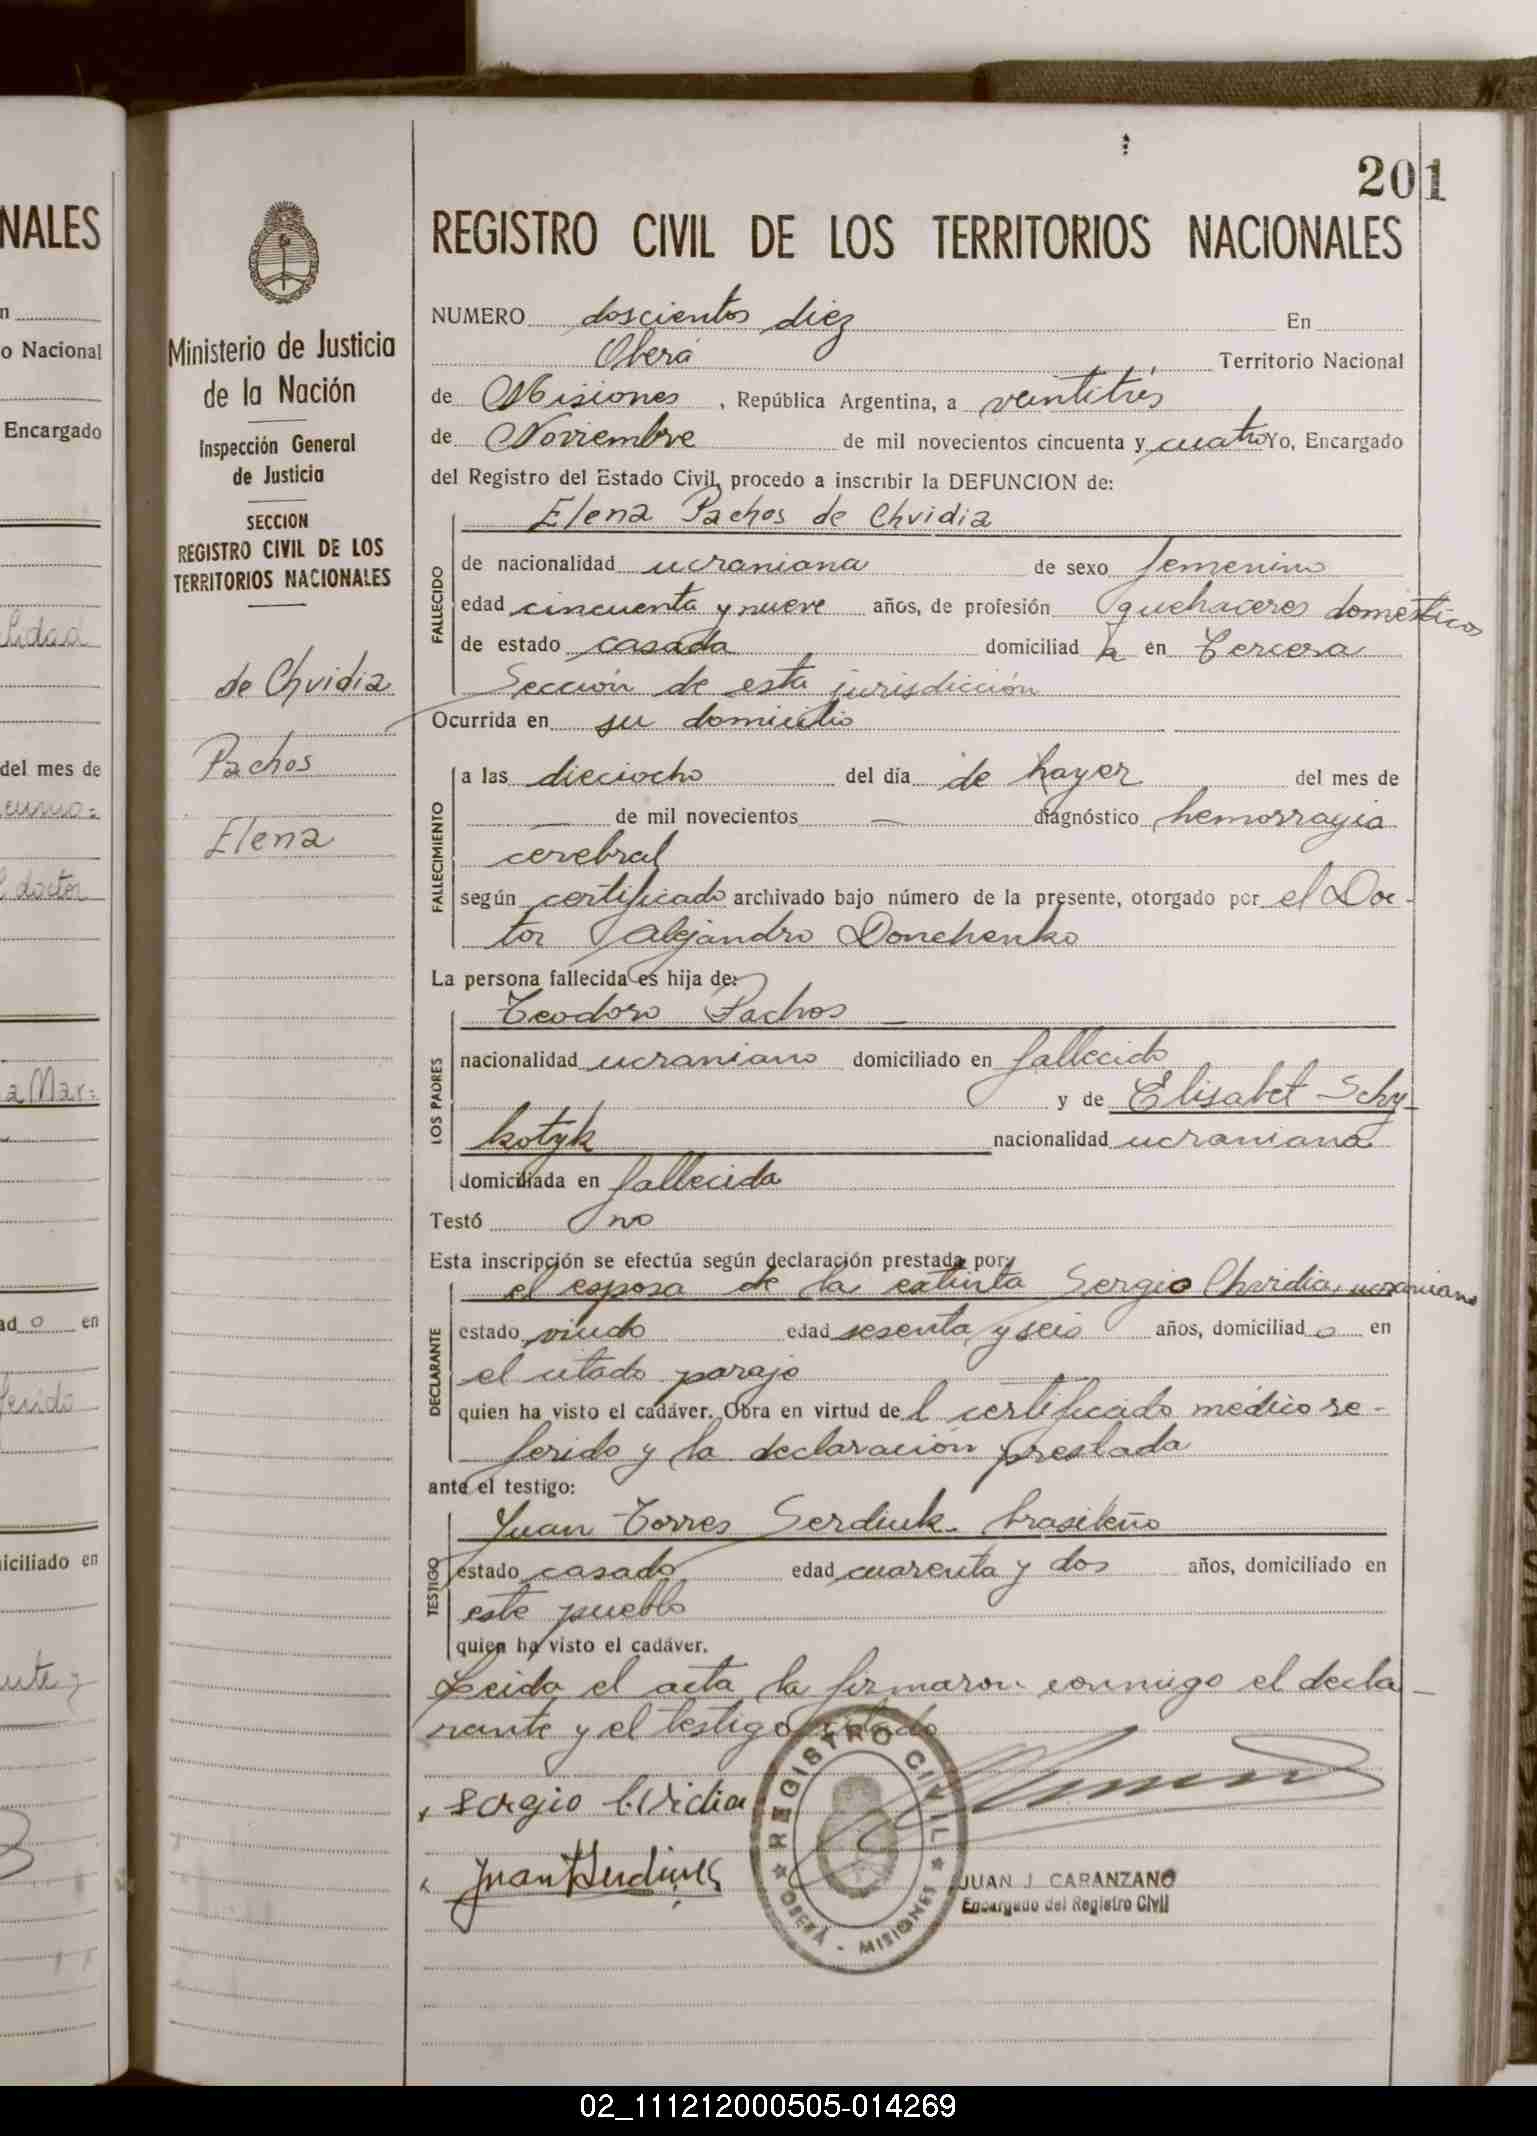 201
REGISTRO CIVIL DE LOS TERRITORIOS NACIONALES
Ministerio de Justicia
de la Nación
Inspección General
de Justicia
SECCION
REGISTRO CIVIL DE LOS
TERRITORIOS NACIONALES
de Chvidia
Pachos
Elena
NUMERO doscientos diez En
Oberá Territorio Nacional
de Misiones, República Argentina, a veintitrés
de Noviembre de mil novecientos cincuenta y cuatro Yo, Encargado
del Registro del Estado Civil, procedo a inscribir la DEFUNCION de:
FALLECIDO
Elena Pachos de Chvidia
de nacionalidad ucraniana de sexo femenino
edad cincuenta y nueve años, de profesión quehaceres domésticos
de estado casada domiciliad a en Tercera
Sección de esta jurisdicción
Ocurrida en su domicilio
FALLECIMIENTO
a las dieciocho del día de hayer del mes de
— de mil novecientos — diagnóstico hemorragia
cerebral
según certificado archivado bajo número de la presente, otorgado por el Doc-
tor Alejandro Donchenko
La persona fallecida es hija de:
LOS PADRES
Teodoro Pachos —
nacionalidad ucraniano domiciliado en fallecido
y de Elisabet Schy-
kotyk nacionalidad ucraniana
domiciliada en fallecida
Testó no
Esta inscripción se efectúa según declaración prestada por:
DECLARANTE
el esposa de la extinta Sergio Chvidia, ucraniano
estado viudo edad sesenta y seis años, domiciliad o en
el citado paraje
quien ha visto el cadáver. Obra en virtud de l certificado médico re-
ferido y la declaración prestada
ante el testigo:
TESTIGO
Juan Torres Serdiuk. brasileño
estado casado edad cuarenta y dos años, domiciliado en
este pueblo
quien ha visto el cadáver.
Leida el acta la firmaron conmigo el decla-
rante y el testigo citado
Sergio Cvidia
Juan T Serdiuk
REGISTRO CIVIL
OBERÁ - MISIONES
JUAN J. CARANZANO
Encargado del Registro Civil
NALES
o Nacional
Encargado
lidad
del mes de
doctor
a Mar:
ad o en
ferido
iciliado en
02_111212000505-014269